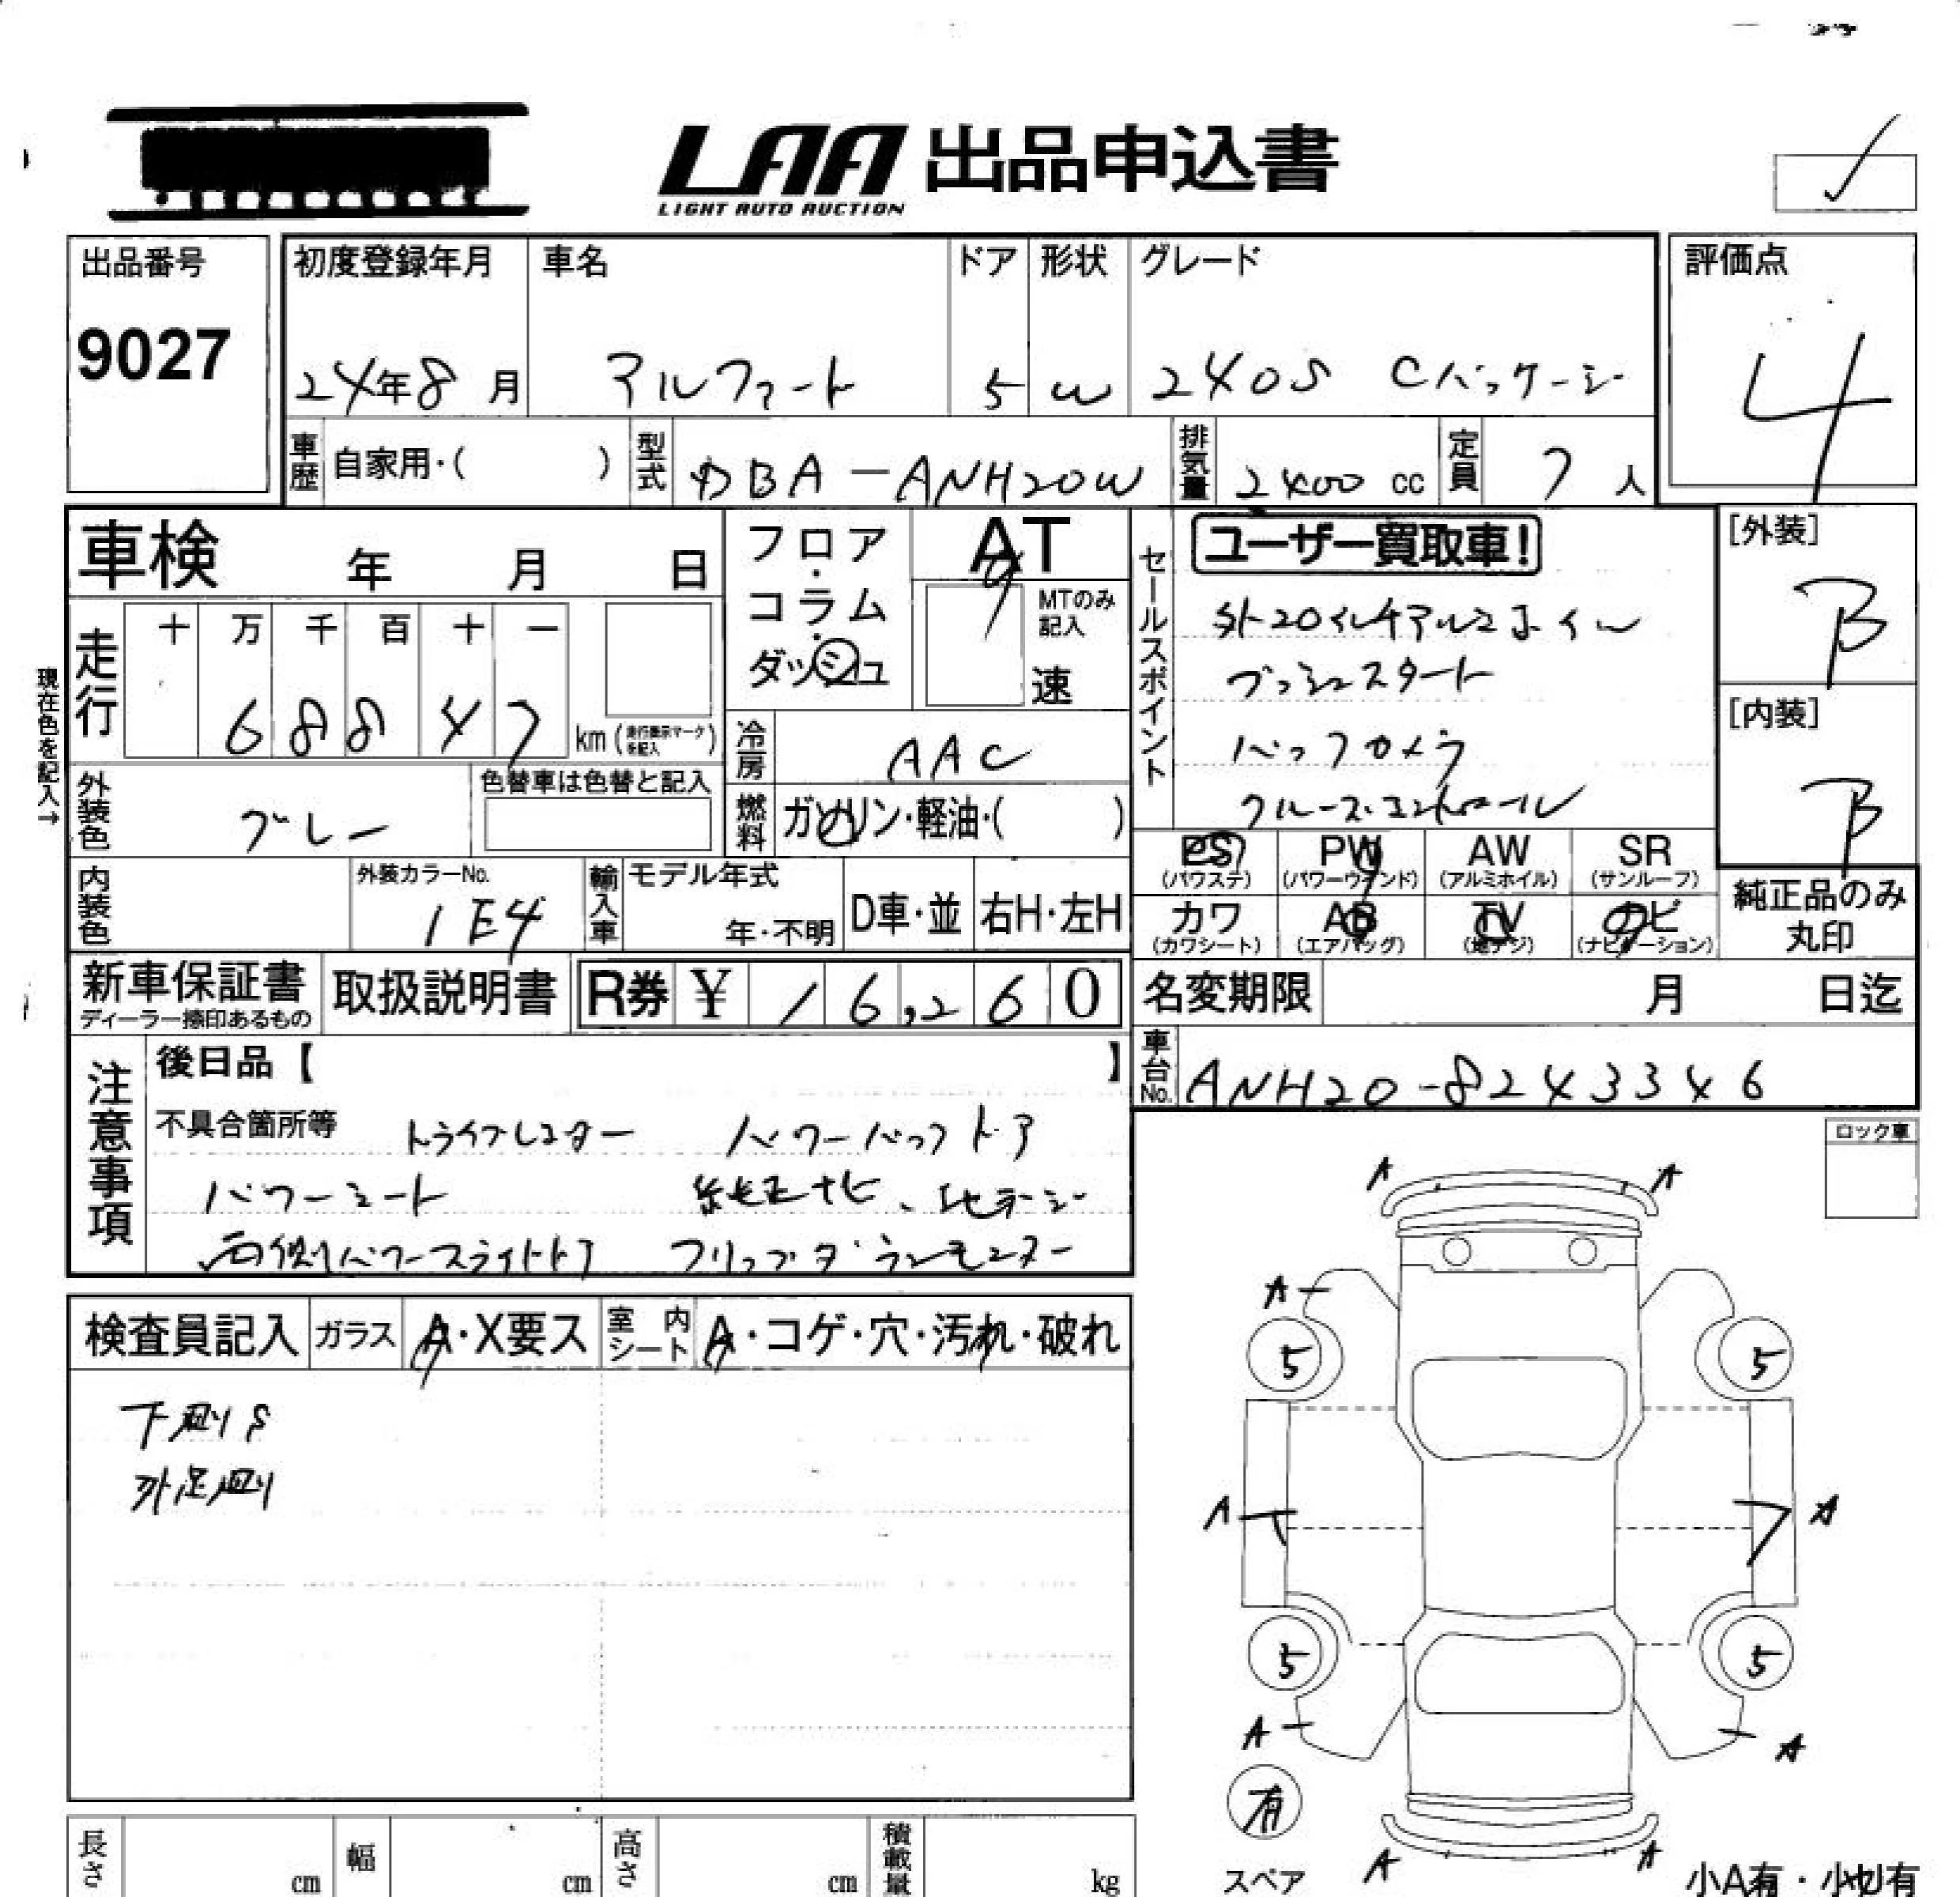 LAA 出品申込書
LIGHT AUTO AUCTION
出品番号
9027
初度登録年月
24年8月
車名
アルファード
ドア
5
形状
W
グレード
240S Cパッケージ
評価点
4
車歴 自家用・( )
型式 DBA-ANH20W
排気量 2400 cc
定員 7人
車検 年 月 日
フロア・コラム・ダッシュ
AT
MTのみ記入
速
セールスポイント
ユーザー買取車!
外20インチアルミホイル
プッシュスタート
バックカメラ
クルーズコントロール
[外装]
B
[内装]
B
現在色を記入→
走行 十 万 千 百 十 一
68847 km (走行表示マークを記入)
冷房 AAC
燃料 ガソリン・軽油・( )
外装色 グレー
色替車は色替と記入
内装色
外装カラーNo.
1E4
輸入車 モデル年式
年・不明
D車・並
右H・左H
PS (パワステ)
PW (パワーウインド)
AW (アルミホイル)
SR (サンルーフ)
カワ (カワシート)
AB (エアバッグ)
TV (地デジ)
ナビ (ナビゲーション)
純正品のみ丸印
新車保証書
ディーラー捺印あるもの
取扱説明書
R券 ¥ 16,260
名変期限 月 日迄
車台No. ANH20-8243346
注意事項
後日品【 】
不具合箇所等
ドライブレコーダー パワーバックドア
パワーシート 純正ナビ、地デジ
両側パワースライドドア フリップダウンモニター
ロック車
検査員記入
ガラス A・X要ス
室内シート A・コゲ・穴・汚れ・破れ
下廻りS
外足廻り
A A
A
5 5
A A
5 5
A A
有
スペア
A A
小A有・小U有
長さ cm
幅 cm
高さ cm
積載量 kg